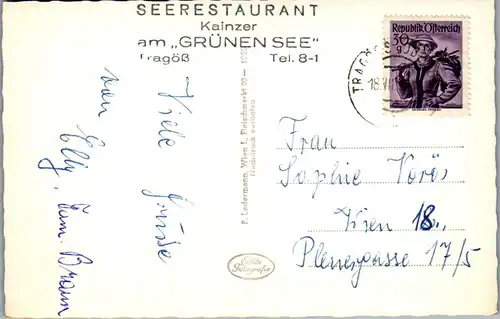 SEERESTAURANT
Kainzer
am „GRÜNEN SEE“
Tragöß Tel. 8-1
Viele Grüsse
von Elly, Fam. Braun
P. Ledermann, Wien I., Fleischmarkt 20 —
Nachdruck verboten
Echte
Fotografie
Republik Österreich
30
TRAGÖSS
18.VII
Frau
Sophie Vörös
Wien 18.,
17/5